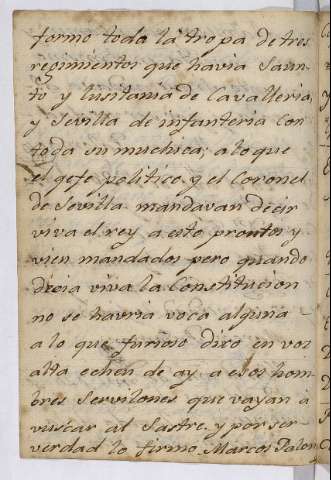 formo toda la tropa de tres
regimientos que havia Sagun-
to y lusitania de Cavalleria
y Sevilla de infanteria con
toda su muchica; a lo que
el gefe politico y el Coronel
de Sevilla mandavan decir
viva el rey a esto prontos y
vien mandados pero quando
decia viva la Constitucion
no se havria voca alguna
a lo que furioso dixo en voz
alta echen de ay a esos hom
bres Servilones que vayan a
vuscar al Sastre. y por ser
verdad lo firmo Marcos Palon